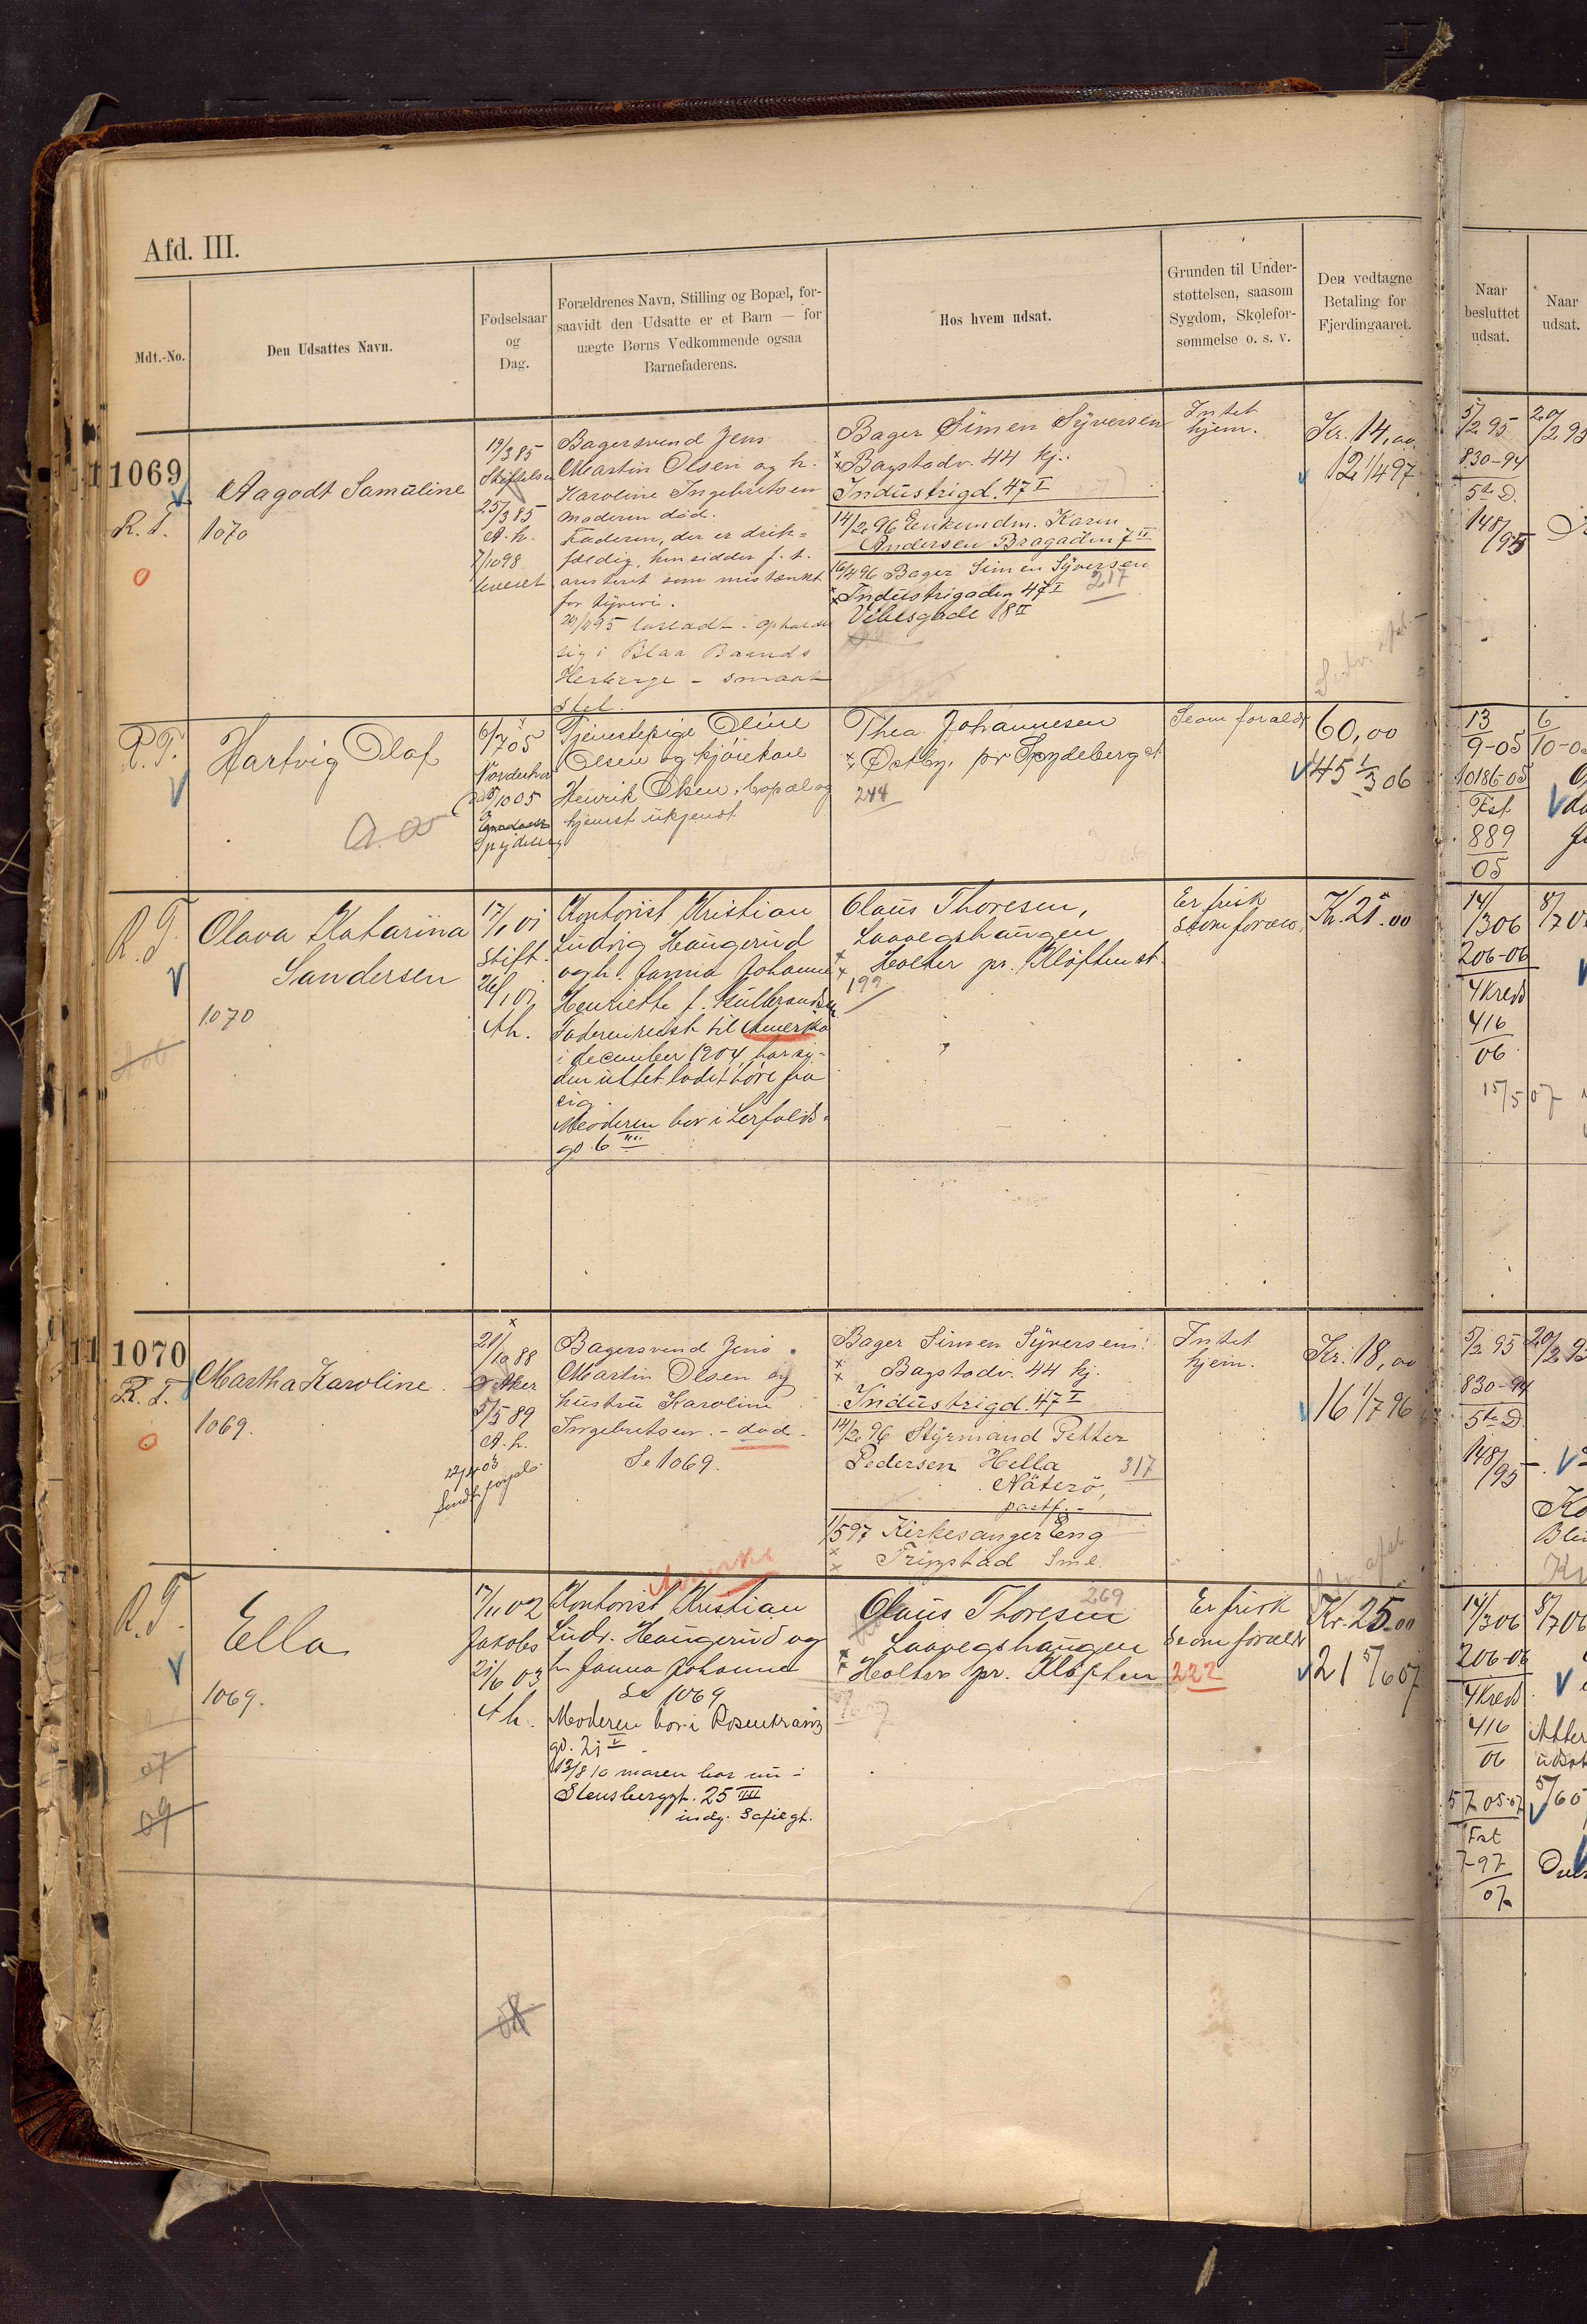 Afd. III.
Mdt.-No.
Den Udsattes Navn.
Fødselsaar
og
Dag.
Forældrenes Navn, Stilling og Bopæl, for-
saavidt den Udsatte er et Barn — for
uægte Børns Vedkommende ogsaa
Barnefaderens.
Hos hvem udsat.
Grunden til Under-
støttelsen, saasom
Sygdom, Skolefor-
sømmelse o. s. v.
Den vedtagne
Betaling for
Fjerdingaaret.
Naar
besluttet
udsat.
Naar
udsat.
1069
R. T.
Aagodt Samuline
1070
19/3 85
Stiftelsen
25/3 85
A. h.
7/10 98
Bagersvend Jens
Martin Olsen og h.
Karoline Ingebretsen
moderen død.
Faderen, der er drik-
fældig, hun sidder f. t.
arresteret som mistænkt
for tyveri.
29/4 95 løsladt - opholder
sig i Blaa Baands
Herberge - smaat
stel.
Bager Simen Syversen
Bagstadv. 44 kj.
Industrigd. 47 I
14/2 96 Enkemdm. Karen
Andersen Bragaden 7 II
16/4 96 Bager Simen Syversen
Industrigaden 47 I 217
Vibesgade 18 II
Intet
hjem.
Kr. 14,00
12 1/4 97
5/2 95
20/2 95
830-94
5te D.
148/95
R. T.
Hartvig Olaf
6/7 05
8/10 05
Spydeberg
Tjenestepige Oline
Olsen og kjørekarl
Henrik Olsen, bopæl og
hjemst ukjendt
Thea Johannesen
Østby, pr Spydeberg st
244
Se om forældr
60,00
45 1/3 06
13
9-05
6
10-0
10186-05
Fst
889
05
R. T.
Olava Katarina
Sandersen
1070
17/1 01
Stift.
26/1 01
Ah.
Kontorist Kristian
Ludvig Haugerud
og h. Janna Johanne
Henriette f. Gulbrandsen
Faderen reist til Amerika
i december 1904, har si-
den intet ladet høre fra
sig.
Moderen bor i Herfølds-
gd. 6 IIII
Claus Thoresen,
Laaegshaugen
Holter pr. Kløften st.
199
Er frisk
Se om foræld.
Kr. 25.00
14/3 06
8/7 06
206-06
4 Kreds
416
06
15/5 07
1070
R. T.
Martha Karoline.
1069.
21/10 88
Aker
5/5 89
A. h.
22/4 03
Bagersvend Jens
Martin Olsen og
hustru Karoline
Ingebretsen. - død -
Se 1069.
Bager Simen Syversen
Bagstadv. 44 kj.
Industrigd. 47 I
14/2 96 Styrmand Petter
Pedersen Hella 317
Nøterø,
postf. -
1/5 97 Kirkesanger Eng
Trygstad Sml.
Intet
hjem.
Kr. 18,00
16 1/7 96
5/2 95
20/2 95
830-94
5te D.
148/95
R. T.
Ella
1069.
07
09
17/11 02
Jakobs
21/6 03
Ah.
Amerika
Kontorist Kristian
Ludv. Haugerud og
h. Janna Johanne
Se 1069
Moderen bor i Rosenkranz
gd. 21 V
13/8 10 moren bor nu i
Stensberggt. 25 IIII
indg. Sofiegt.
269
Claus Thoresen
Laaegshaugen
Holter pr. Kløften 222
Er frisk
Se om foræld
Kr. 25.00
21 5/6 07
14/3 06
8/7 06
206-06
4 Kreds
416
06
5705-07
5/6 0
Fst
797
07
08